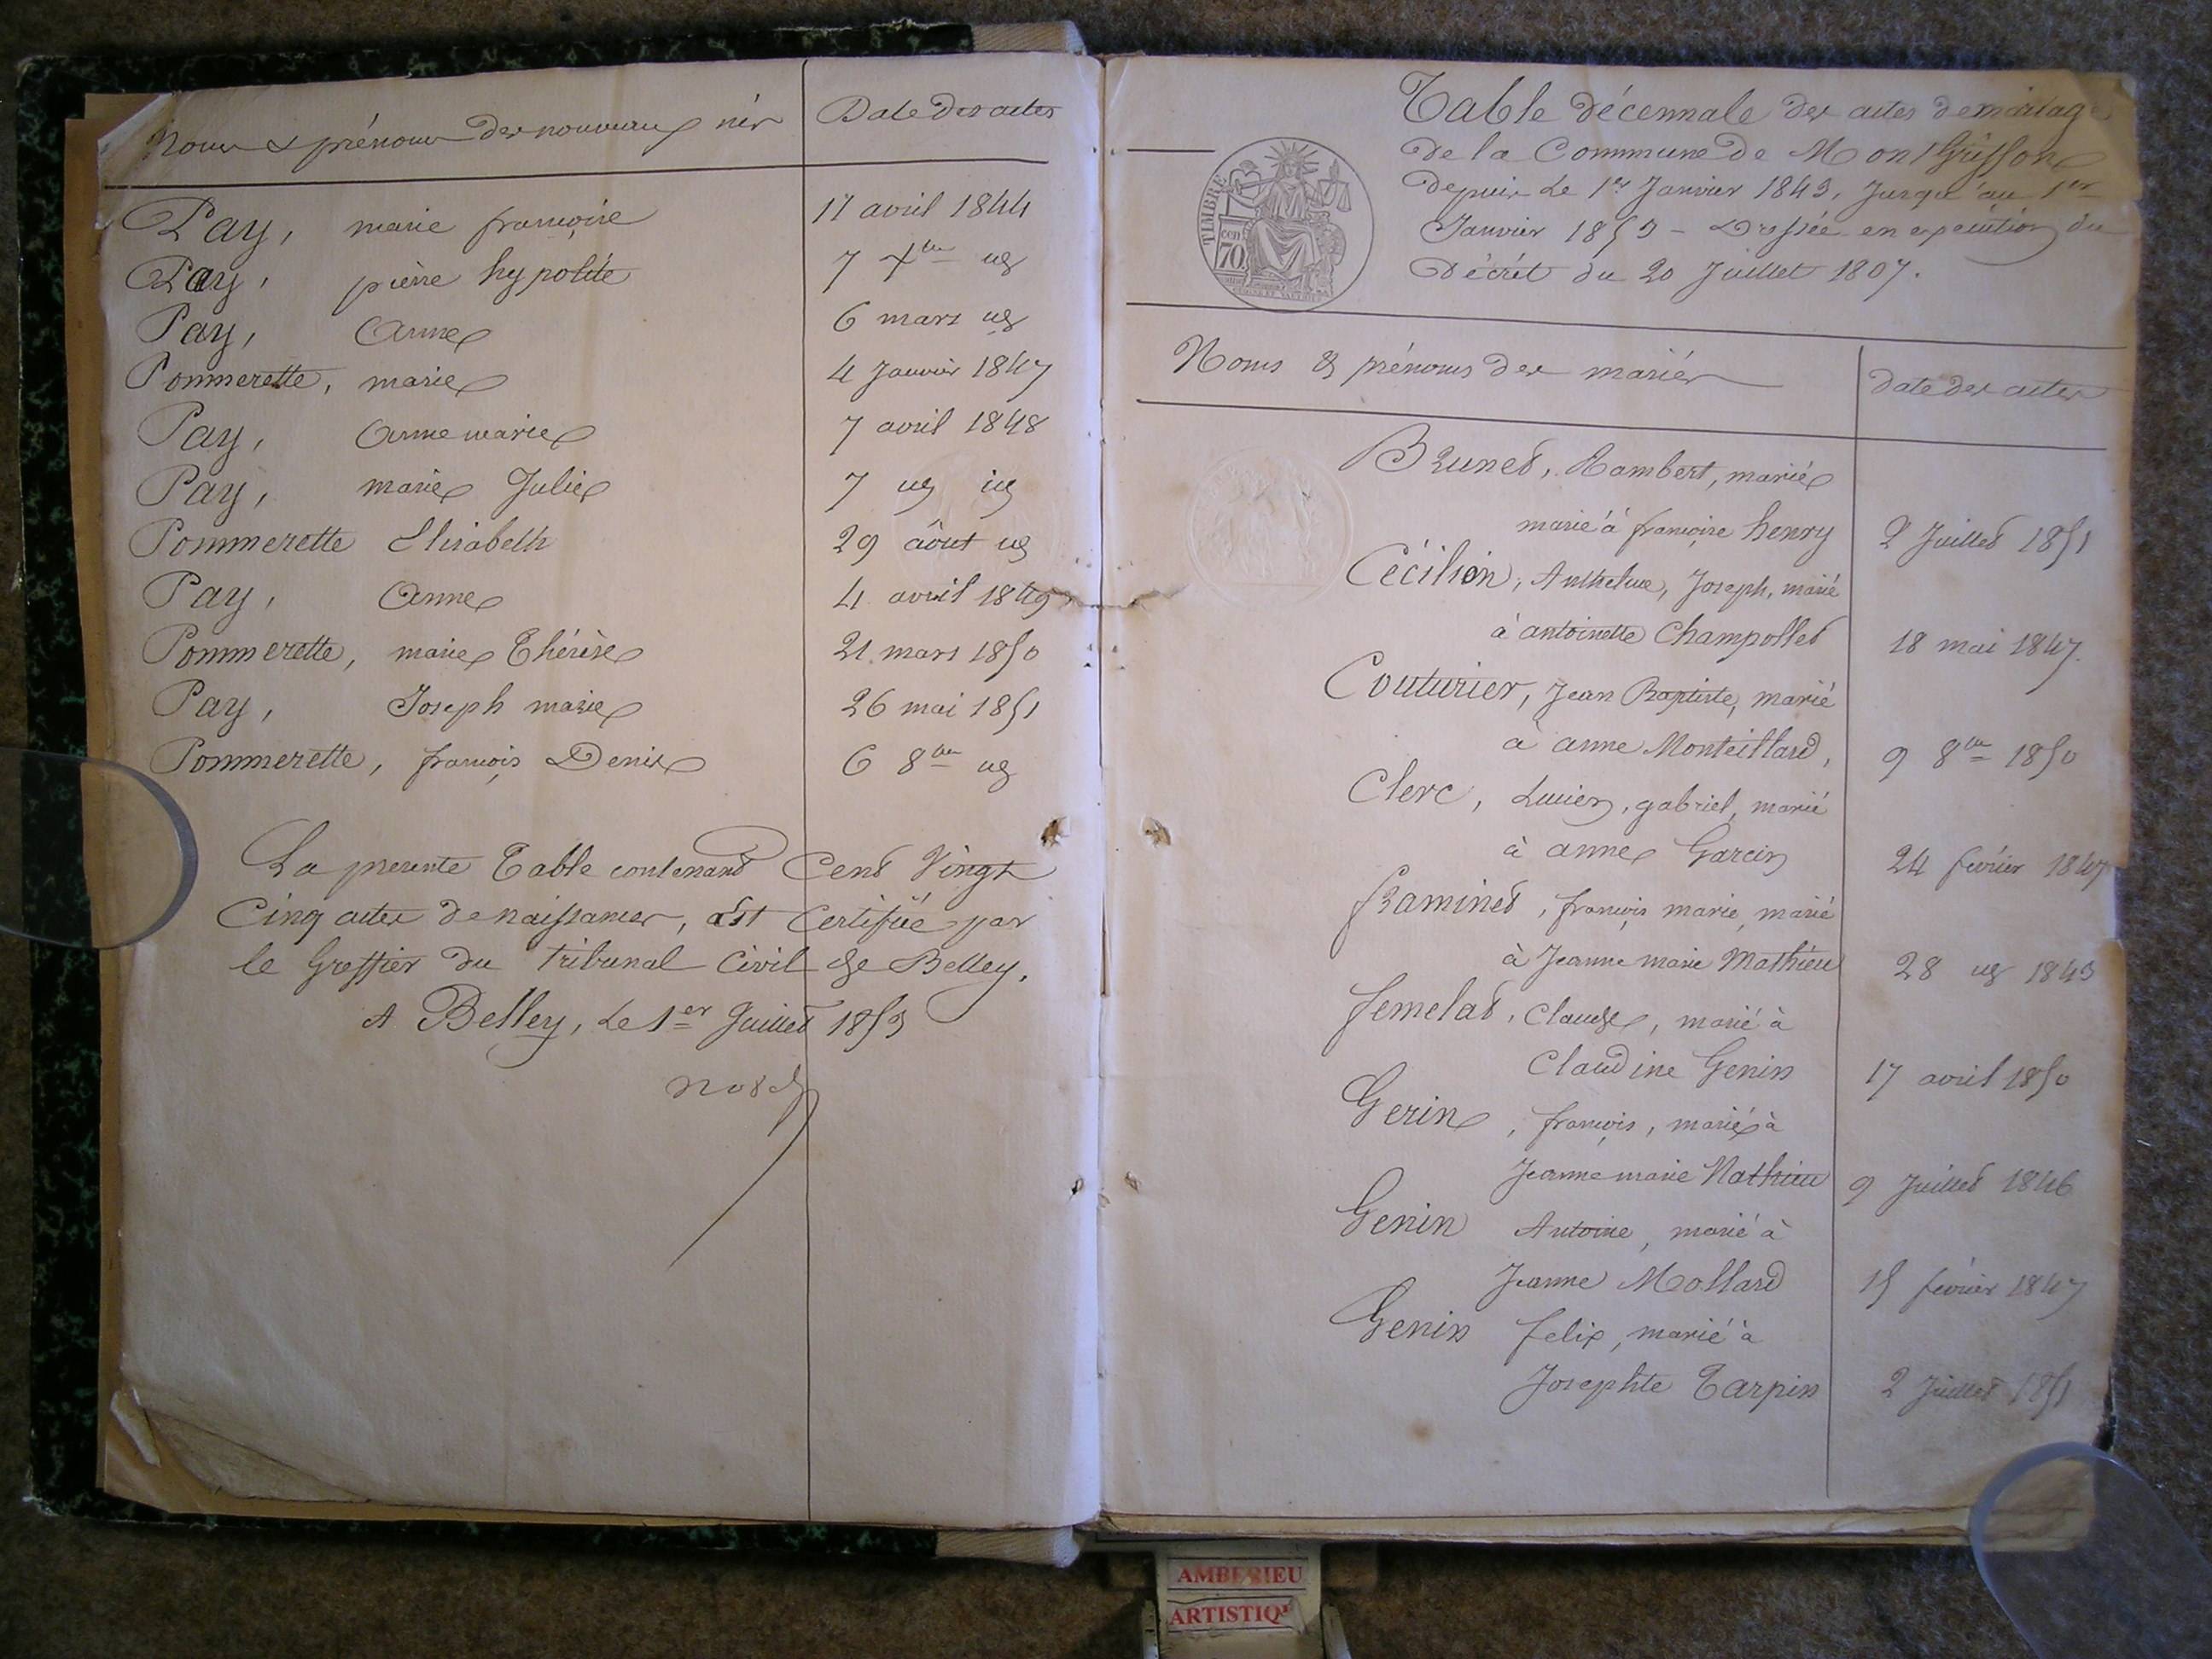 Noms & prénoms des nouveaux nés
Date des actes
Pay, marie françoise 17 avril 1844
Pay, pierre hypolite 7 7bre
Pay, Anne 6 mars
Pommerette, marie 4 Janvier 1847
Pay, Anne marie 7 avril 1848
Pay, marie Julie 7
Pommerette Elisabeth 29 âout
Pay, Anne 4 avril 1849
Pommerette, marie Thérèse 21 mars 1850
Pay, Joseph marie 26 mai 1851
Pommerette, françois Denis 6 8bre
La presente Table contenant Cent Vingt
Cinq actes de naissances, est Certifiée par
le Greffier du Tribunal Civil de Belley.
A Belley, Le 1er Juillet 1853
Table décennale des actes de mariage
de la Commune de MontGriffon
Depuis Le 1er Janvier 1843, Jusqu'au 1er
Janvier 1853 - Dressée en execution du
Décrét du 20 Juillet 1807.
TIMBRE
70
Noms & prénoms des mariés
date des actes
Brunet, Rambert, marié
marié à françoise henry 2 Juillet 1851
Cécilion, Anthelme, Joseph, marié
à antoinette Champollet 18 mai 1847.
Couturier, Jean Baptiste, marié
à anne Monteillard, 9 8bre 1850
Clerc, Lucien, gabriel, marié
à anne Garcin 24 février 1847
framinet, françois marie, marié
à Jeanne marie Mathieu 28 1843
femelat, Claude, marié à
Claudine Genin 17 avril 1850
Gerin, françois, marié à
Jeanne marie Mathieu 9 Juillet 1846
Genin Antoine, marié à
Jeanne Mollard 15 février 1847
Genin felix, marié à
Josephte Tarpin 2 Juillet 1851
AMBERIEU
ARTISTIQ